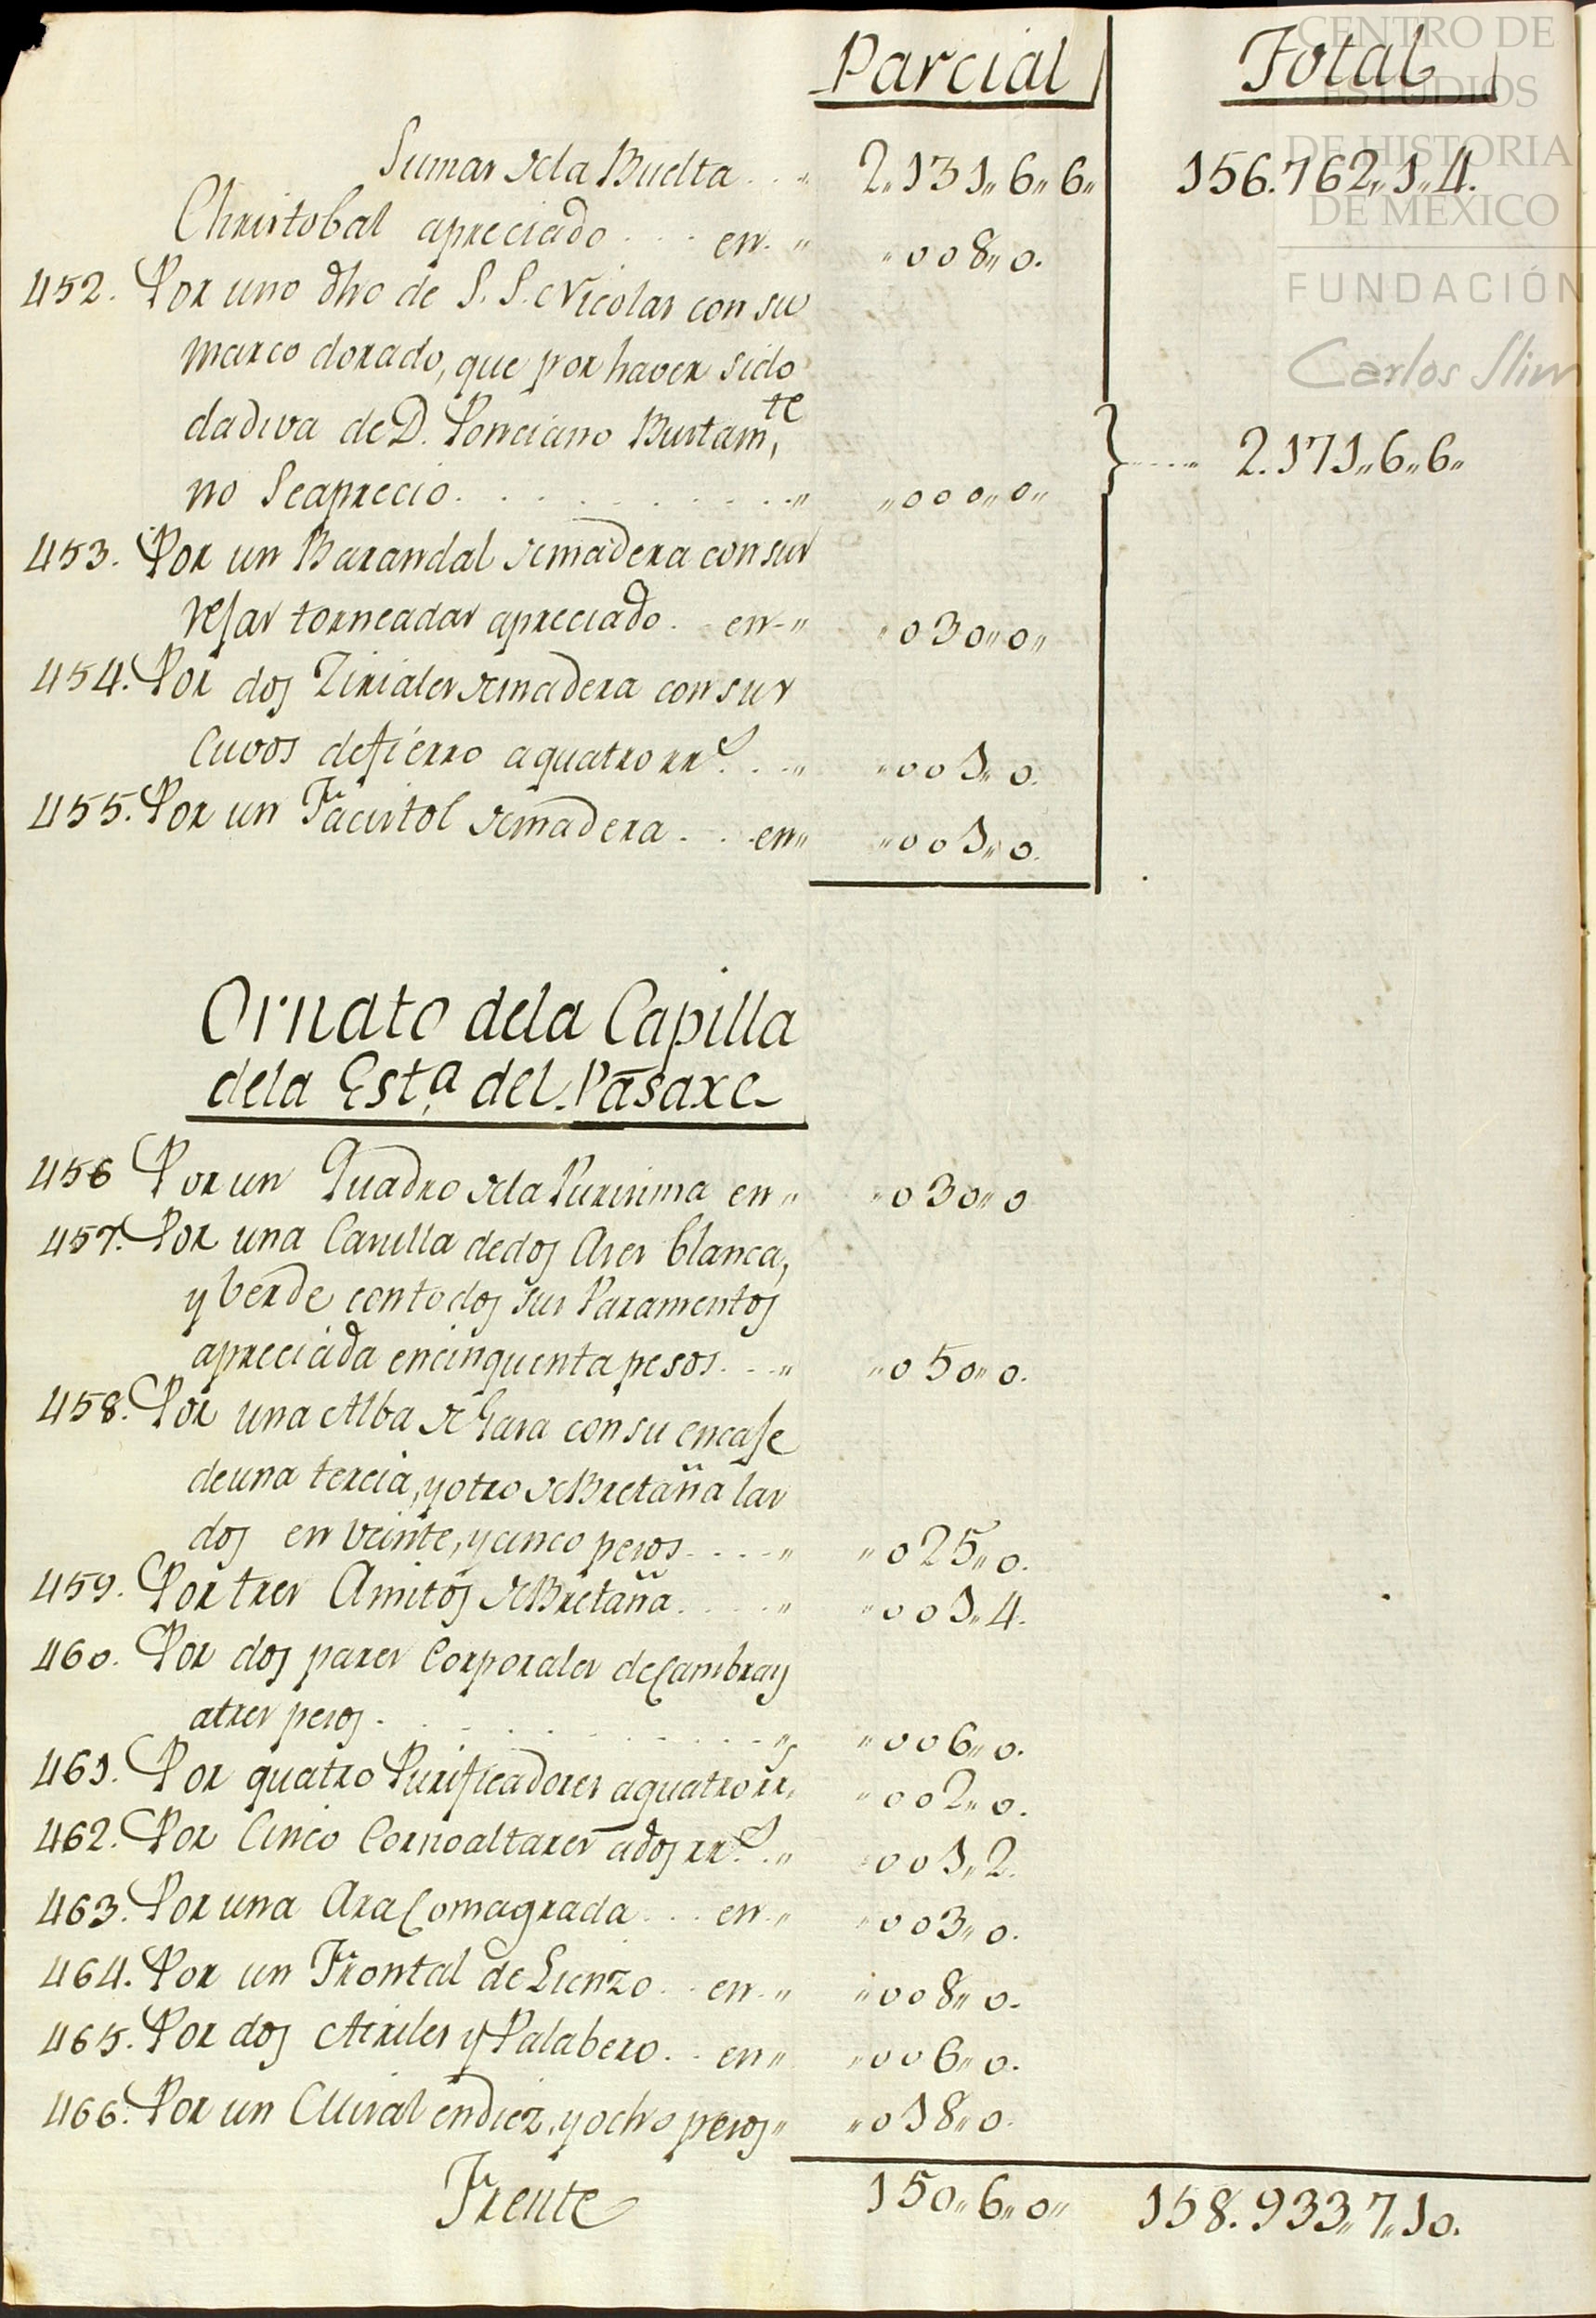 Parcial Total
CENTRO DE
ESTUDIOS
DE HISTORIA
DE MEXICO
FUNDACIÓN
Carlos Slim
Sumas dela Buelta . . „ 2„131„6„6„ 156.762„1„4.
Christobal apreciado . . . en . „ „008„0.
452. Por uno dho de S. S. Nicolas con su
marco dorado, que por haver sido
dadiva de D. Ponciano Bustam,te
no Seaprecio . . . . . . . . „ „000„0„
} . . . . „ 2.171„6„6„
453. Por un Barandal demadera con sus
rejas torneadas apreciado . en . „ „030„0„
454. Por dos Ziriales demadera con sus
Cuvos defierro a quatro rrs. . . „ „001„0.
455. Por un Facistol demadera . . . en „ „001„0.
Ornato dela Capilla
dela Est.a del Pasaxe
456 Por un Quadro dela Purisima en „ „030„0
457. Por una Casulla dedos Ases blanca,
y berde contodos sus Paramentos
apreciada encinquenta pesos . . . „ „050„0.
458. Por una Alba de Gasa con su encaje
deuna tercia, y otro de Bretaña las
dos en veinte, y cinco pesos . . . . „ „025„0.
459. Por tres Amitos de Bretaña . . . . . „ „001„4.
460. Por dos pares Corporales de Cambray
atres pesos . . . . . . . . . . „ „006„0.
461. Por quatro Purificadores aquatro rrs, „002„0.
462. Por Cinco Cornoaltares ados rrs. . „ „001„2.
463. Por una Ara Consagrada . . . en . „ „003„0.
464. Por un Frontal de Lienzo . . en . „ „008„0.
465. Por dos Atriles y Palabero . . en „ „006„0.
466. Por un Misal endiez, y ocho pesos „ „018„0.
Frente 150„6„0„ 158.933„7„10.